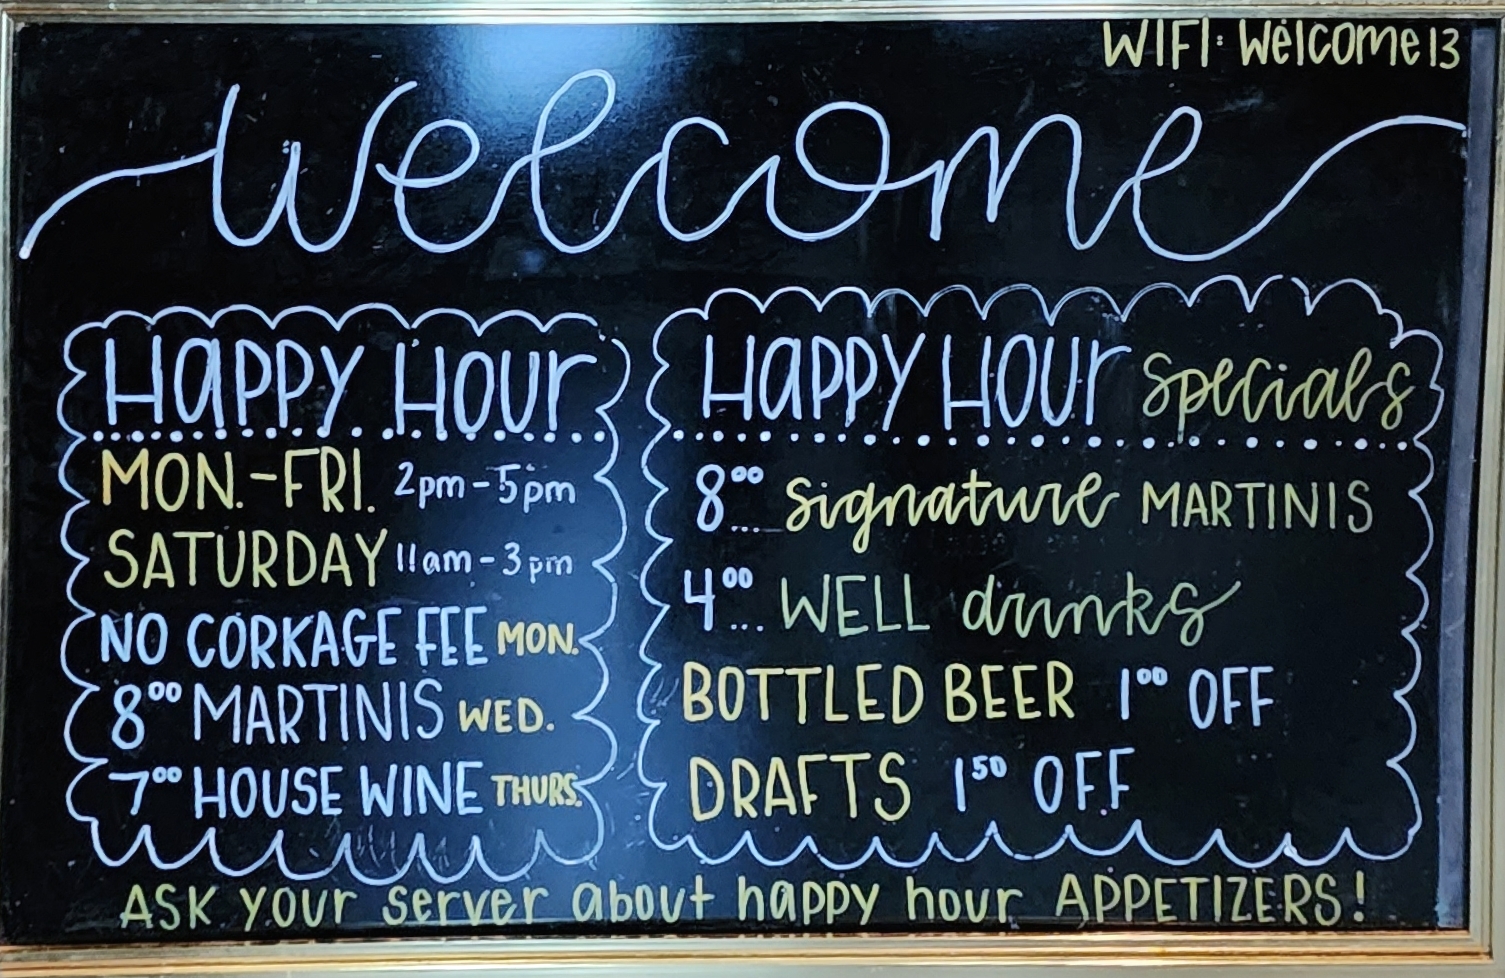 WIFI: Welcome13
Welcome
Happy Hour
MON.-FRI. 2pm-5pm
SATURDAY 11am-3pm
NO CORKAGE FEE MON.
8⁰⁰ MARTINIS WED.
7⁰⁰ HOUSE WINE THURS.
Happy Hour specials
8⁰⁰... signature MARTINIS
4⁰⁰... WELL drinks
BOTTLED BEER 1⁰⁰ OFF
DRAFTS 1⁵⁰ OFF
ASK your server about happy hour APPETIZERS!